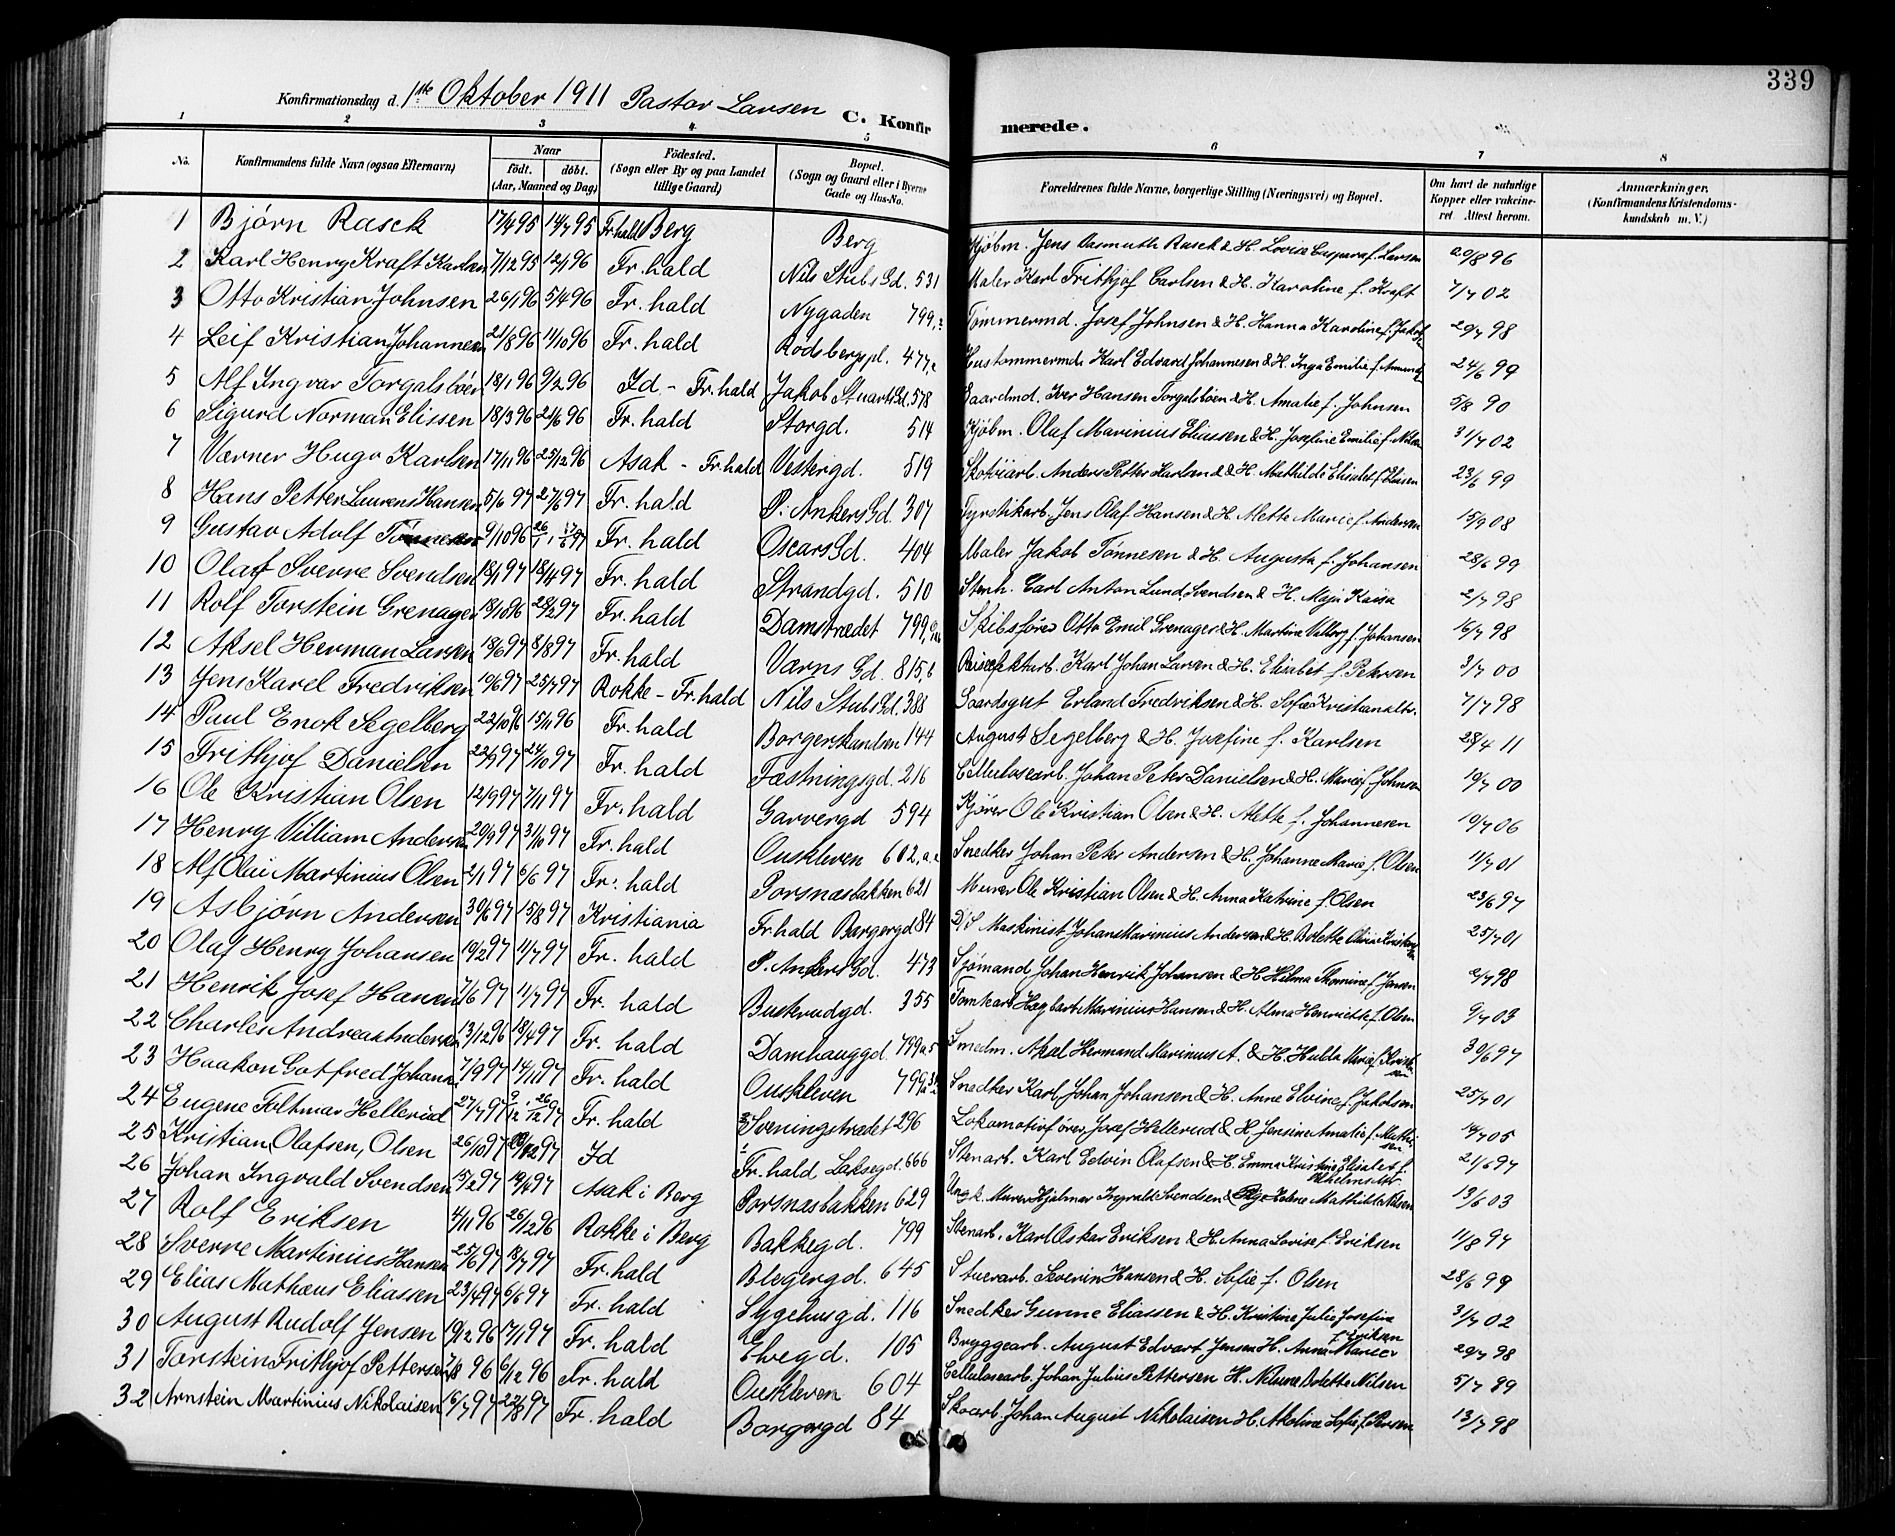 339
Konfirmationsdag d. 1ste Oktober 1911 Pastor Larsen C. Konfirmerede.
1 2 3 4 5 6 7 8
No. Konfirmandens fulde Navn (ogsaa Efternavn) Naar født. døbt. (Aar, Maaned og Dag) Födested. (Sogn eller By og paa Landet tillige Gaard) Bopæl. (Sogn og Gaard eller i Byerne Gade og Hus-No. Forældrenes fulde Navne, borgerlige Stilling (Næringsvei) og Bopæl. Om havt de naturlige Kopper eller vaccineret Attest herom. Anmærkninger. (Konfirmandens Kristendomskundskab m. V.)
1 Bjørn Rasck 17/4 95 14/7 95 Fr.hald Berg Berg Kjøbm. Jens Rasmuth Rasck & H. Lovise Caspara f. Larsen 20/8 96
2 Karl Henry Kraft Karlsen 7/12 95 12/1 96 Fr. hald Nils Stubs Gd. 531 Maler Karl Frithjof Carlsen & H. Karoline f. Kraft 7/7 02
3 Otto Kristian Johnsen 26/1 96 5/4 96 Fr. hald Nygaden 799, Tømmermd. Josef Johnsen & H. Hanna Karoline f. Jakobs 29/7 98
4 Leif Kristian Johannesen 21/8 96 11/10 96 Fr. hald Rødsbergspl. 477, Hustømmermd. Karl Edvard Johannesen & H. Inga Emilie f. Amund 24/6 99
5 Alf Ingvar Torgalsbøen 18/1 96 9/2 96 Id - Fr. hald Jakob Stuarts Gd. 578 Gaardmd. Iver Hansen Torgalsbøen & H. Amalie f. Johnsen 5/8 90
6 Sigurd Norman Elissen 18/3 96 21/6 96 Fr. hald Storgd. 514 Kjøbm. Olaf Marinius Eliassen & H. Josefine Emilie f. Nilsen 31/7 02
7 Værner Hugo Karlsen 17/11 96 25/12 96 Asak - Fr. hald Vestergd. 519 Skotöiarb. Anders Petter Karlsen & H. Mathilde Elisabet f. Eliasen 23/6 99
8 Hans Petter Laurens Hansen 5/6 97 27/6 97 Fr. hald P. Ankers Gd. 307 Fyrstikarb. Jens Olaf Hansen & H. Alette Marie f. Andersen 15/9 08
9 Gustav Adolf Tönnesen 9/10 96 Fr. hald Oscars Gd. 404 Maler Jakob Tønnesen & H. Augusta f. Johansen 28/6 99
10 Olaf Sverre Svendsen 18/1 97 18/4 97 Fr. hald Strandgd. 510 Stenh. Carl Anton Lund Svendsen & H. Maja Kaisa 2/7 98
11 Rolf Torstein Grenager 18/10 96 28/2 97 Fr. hald Damstrædet 799, Skibsfører Otto Emil Grenager & H. Martine Valborg f. Johansen 16/7 98
12 Aksel Herman Larsen 18/6 97 8/8 97 Fr. hald Værns Gd. 815,b Karl Johan Larsen & H. Elisabet f. Petersen 3/7 00
13 Jens Karel Fredriksen 19/6 97 25/7 97 Rokke - Fr. hald Nils Stubs Gd. 388 Gaardsgut Erland Fredriksen & H. Sofie Kristiansdtr. 7/7 98
14 Paul Enok Segelberg 22/10 96 15/11 96 Fr. hald Borgerskandsen 144 August Segelberg & H. Josefine f. Karlsen 28/4 11
15 Frithjof Danielsen 22/9 97 24/10 97 Fr. hald Fæstningsgd. 216 Cellulosearb. Johan Peter Danielsen & H. Marie f. Johnsen 19/7 00
16 Ole Kristian Olsen 12/9 97 7/11 97 Fr. hald Garvergd 594 Kjører Ole Kristian Olsen & H. Alette f. Johannesen 19/7 06
17 Henry Villiam Andersen 20/9 97 31/10 97 Fr. hald Ouskleven 602, Snedker Johan Peter Andersen & H. Johanne Marie f. Olsen 11/7 01
18 Alf Olai Martinius Olsen 2/1 97 6/6 97 Fr. hald Porsnæsbakken 621 Murer Ole Kristian Olsen & H. Anna Katrine f. Olsen 23/6 97
19 Asbjørn Andersen 30/6 97 15/8 97 Kristiania Fr. hald Borgergd 84 D/S Maskinist Johan Marinius Andersen & H. Bolette Olivia Kristens 25/7 01
20 Olaf Henry Johansen 19/2 97 11/7 97 Fr. hald P. Ankers Gd. 473 Sjømand Johan Henrik Johansen & H. Hilma Thomine f. Jansen 2/7 98
21 Henrik Josef Hansen 7/6 97 11/7 97 Fr. hald Buskrudgd. 355 Tomtearb. Hagbart Marinius Hansen & H. Alma Henriette f. Olsen 9/7 03
22 Charles Andreas Andersen 13/12 96 18/4 97 Fr. hald Damhauggd 799 a 5 Smedm. Axel Hermand Marinius A. & H. Hulda Marie f. Kristensen 30/6 97
23 Haakon Gotfred Johans. 7/9 97 14/11 97 Fr. hald Ouskleven 799 Snedker Karl Johan Johansen & H. Anne Elvine f. Jakobsen 25/7 01
24 Eugene Foltmar Hellerud 27/7 97 Fr. hald Sveningstrædet 296 Lokomotivfører Josef Hellerud & H. Jensine Amalie f. Mathisen 14/7 05
25 Kristian, Olafsen, Olsen 26/10 97 12 97 Id Fr. hald Laksegd. 666 Stenarb. Karl Edvin Olafsen & H. Emma Kristine Elisabet f. Vilhelmsdtr 21/6 97
26 Johan Ingvald Svendsen 15/2 97 19/4 97 Asak i Berg Porsnæsbakken 629 Ungk. Murer Hjalmar Ingvald Svendsen & Pige Helene Mathilde Nilsen 13/6 03
27 Rolf Eriksen 4/11 96 26/12 96 Rokke i Berg Bakkegd. 799 Stenarb. Karl Oskar Eriksen & H. Anna Lovise f. Eriksen 11/8 97
28 Sverre Martinius Hansen 25/6 97 18/7 97 Fr. hald Blegergd. 645 Stuerarb. Severin Hansen & H. Sofie f. Olsen 28/6 99
29 Elias Mathæus Eliassen 23/4 97 6/6 97 Fr. hald Sygehusgd. 116 Snedker Gunne Eliassen & H. Kristine Julie Josefine f. Eriksen 31/7 02
30 August Rudolf Jensen 19/12 96 17/1 97 Fr. hald Elvegd. 105 Bryggearb. August Edvart Jensen H. Anna Marie 29/7 98
31 Torstein Frithjof Pettersen 7/8 96 6/12 96 Fr. hald Ouskleven 604 Cellulosearb. Johan Julius Pettersen H. Nilsine Bolette Nilsen 5/7 99
32 Arnstein Martinius Nikolaisen 6/7 97 22/8 97 Fr. hald Borgergd 84 Skoarb. Johan August Nikolaisen H. Akoline Sofie f. Persen 13/7 98